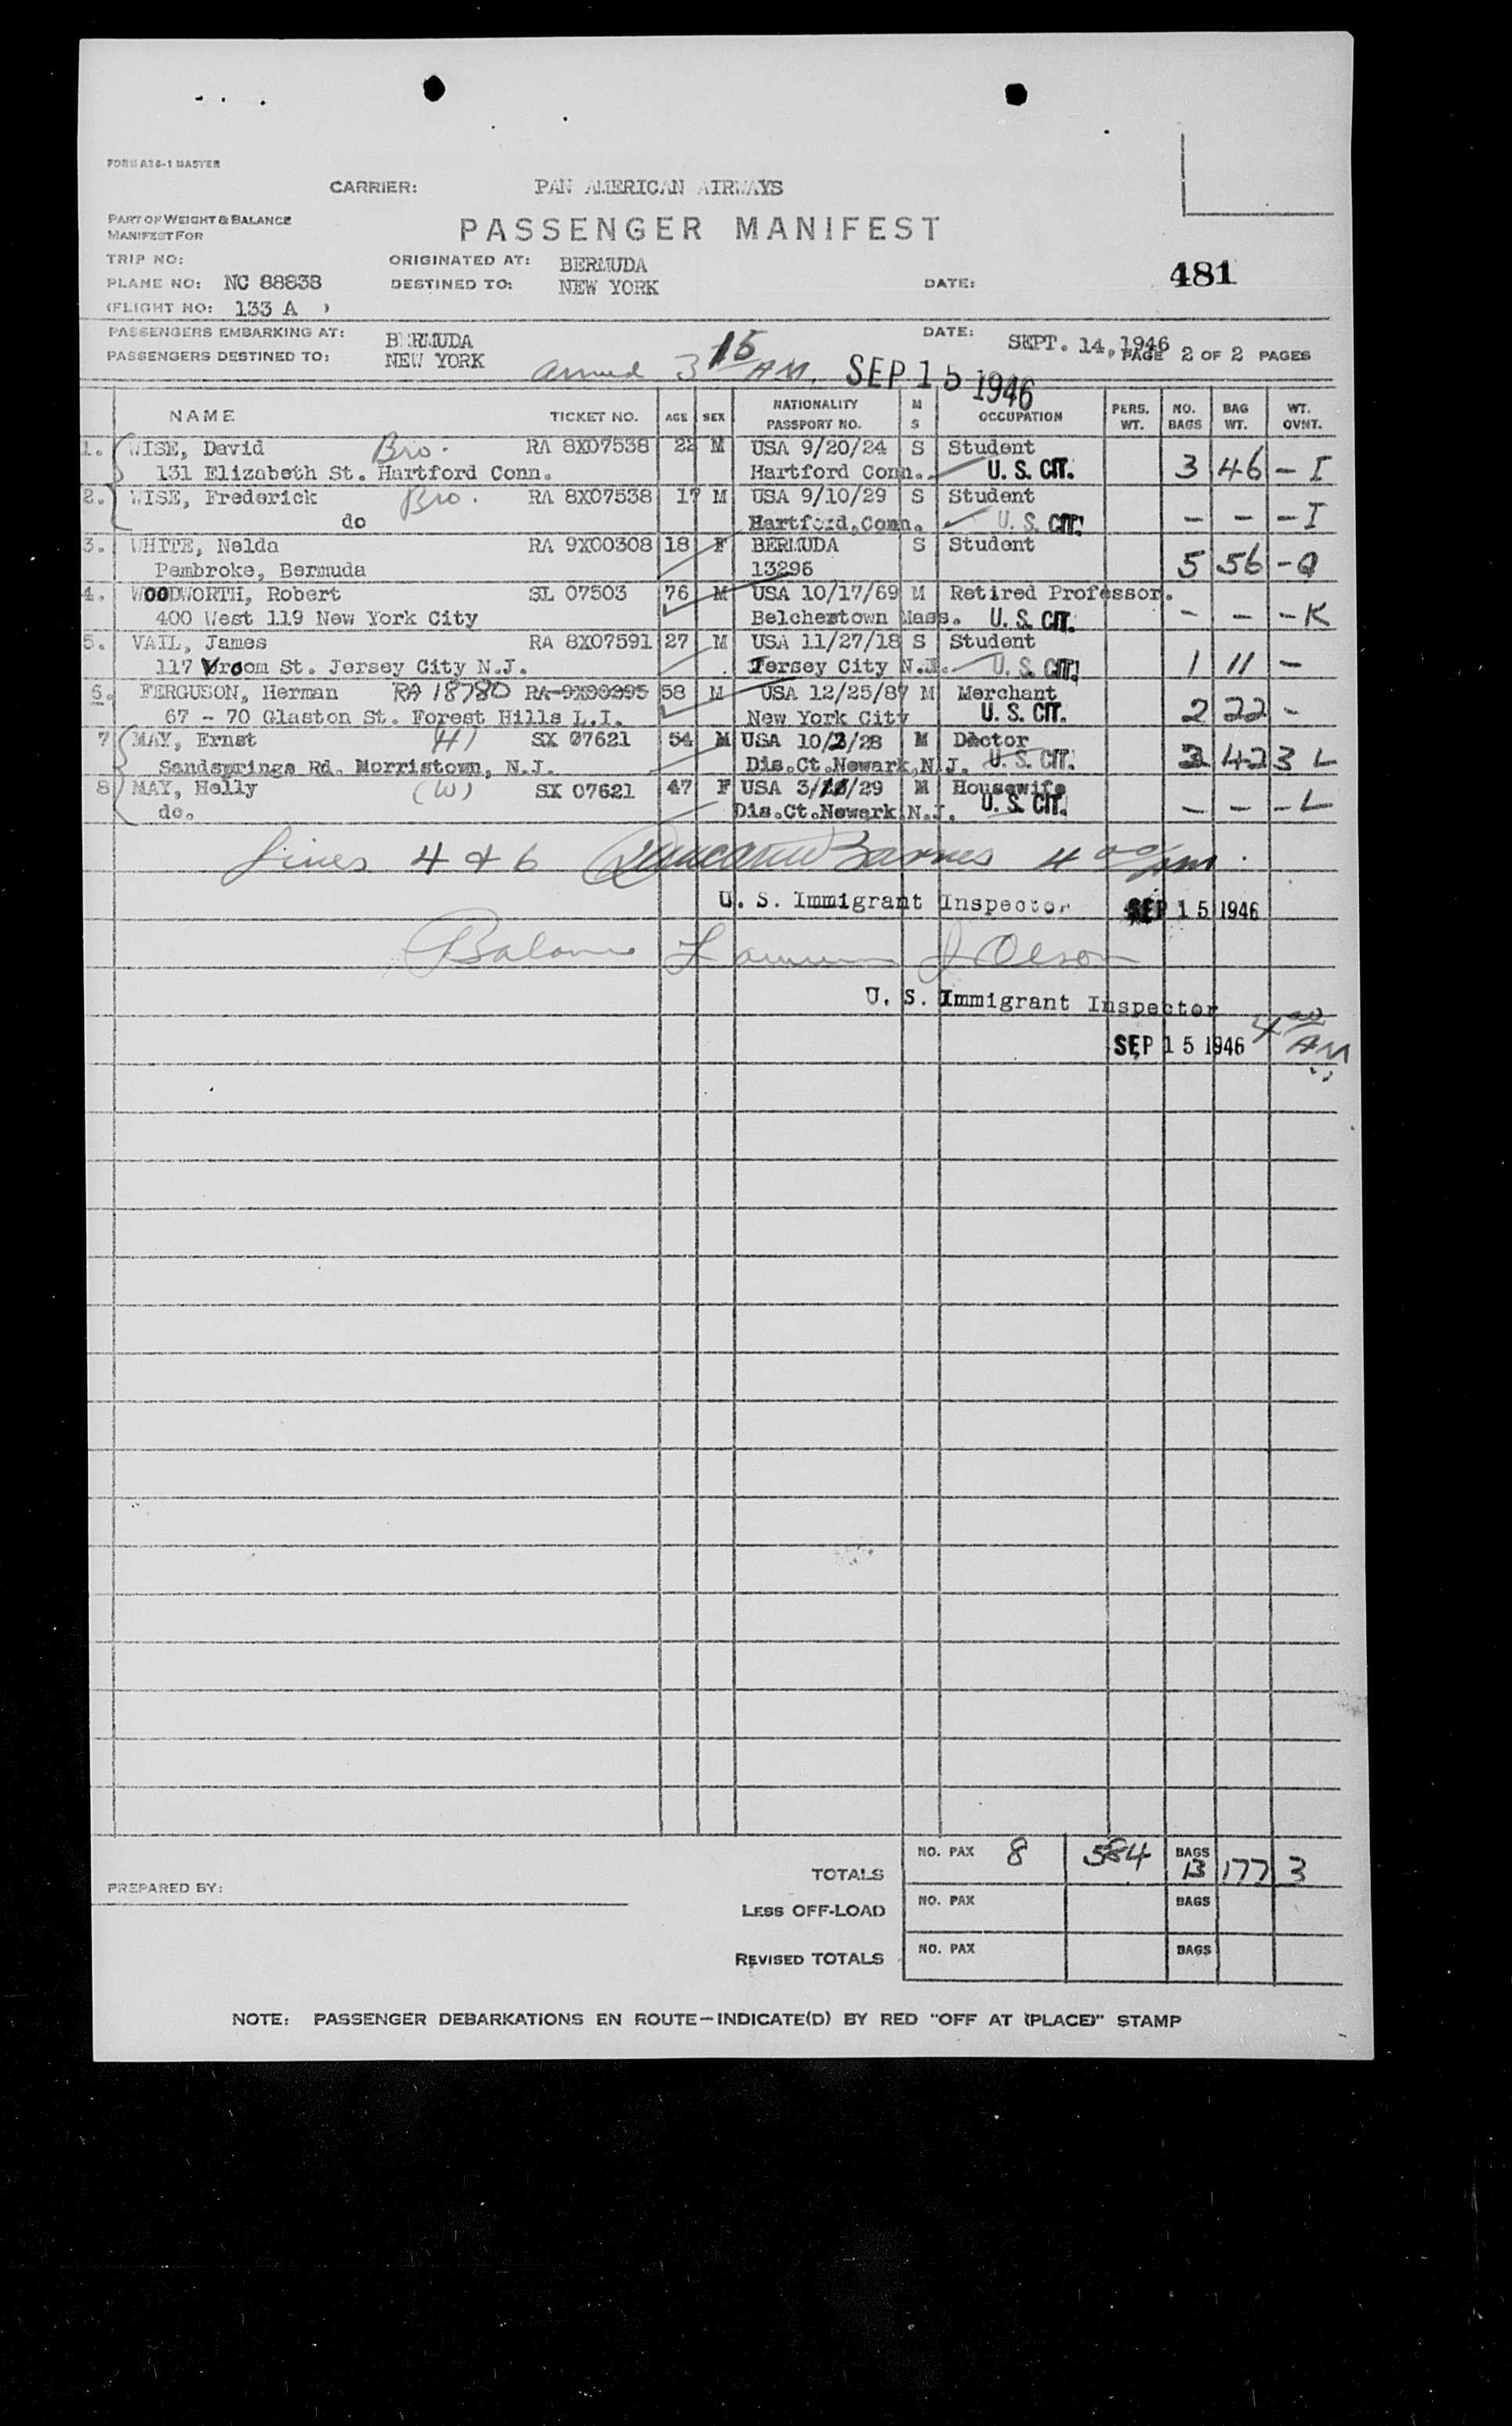 FORM A36-1 MASTER
CARRIER: PAN AMERICAN AIRWAYS
PART OF WEIGHT & BALANCE
MANIFEST FOR
PASSENGER MANIFEST
TRIP NO: ORIGINATED AT: BERMUDA
PLANE NO: NC 88838 DESTINED TO: NEW YORK DATE: 481
(FLIGHT NO: 133 A )
PASSENGERS EMBARKING AT: BERMUDA DATE: SEPT. 14, 1946
PASSENGERS DESTINED TO: NEW YORK PAGE 2 OF 2 PAGES
3 15 AM. SEP 15 1946
NAME TICKET NO. AGE SEX NATIONALITY PASSPORT NO. M S OCCUPATION PERS. WT. NO. BAGS BAG WT. WT. OVNT.
1. WISE, David Bro. RA 8X07538 22 M USA 9/20/24 S Student
131 Elizabeth St. Hartford Conn. Hartford Conn. U. S. CIT. 3 46 - I
2. WISE, Frederick Bro. RA 8X07538 17 M USA 9/10/29 S Student
do Hartford, Conn. U. S. CIT. - - - I
3. WHITE, Nelda RA 9X00308 18 F BERMUDA S Student
Pembroke, Bermuda 13296 5 56 - Q
4. WOODWORTH, Robert SL 07503 76 M USA 10/17/69 M Retired Professor.
400 West 119 New York City Belchestown Mass. U. S. CIT. - - - K
5. VAIL, James RA 8X07591 27 M USA 11/27/18 S Student
117 Vroom St. Jersey City N.J. Jersey City N.J. U. S. CIT. 1 11 -
6. FERGUSON, Herman RA 18780 RA-9X00295 58 M USA 12/25/87 M Merchant
67 - 70 Glaston St. Forest Hills L.I. New York City U. S. CIT. 2 22 -
7 MAY, Ernst H) SX 07621 54 M USA 10/2/28 M Doctor
Sandsprings Rd. Morristown, N.J. Dis.Ct.Newark,N.J. U. S. CIT. 2 42 3 L
8 MAY, Helly (W) SX 07621 47 F USA 3/11/29 M Housewife
do. Dis.Ct.Newark N.J. U. S. CIT. - - - L
Lines 4 & 6 Barnes 4 00 AM.
U. S. Immigrant Inspector SEP 15 1946
Balance J Olson
U. S. Immigrant Inspector
SEP 15 1946 4 00 AM
TOTALS NO. PAX 8 584 BAGS 13 177 3
PREPARED BY:
LESS OFF-LOAD NO. PAX BAGS
REVISED TOTALS NO. PAX BAGS
NOTE: PASSENGER DEBARKATIONS EN ROUTE—INDICATE(D) BY RED "OFF AT (PLACE)" STAMP